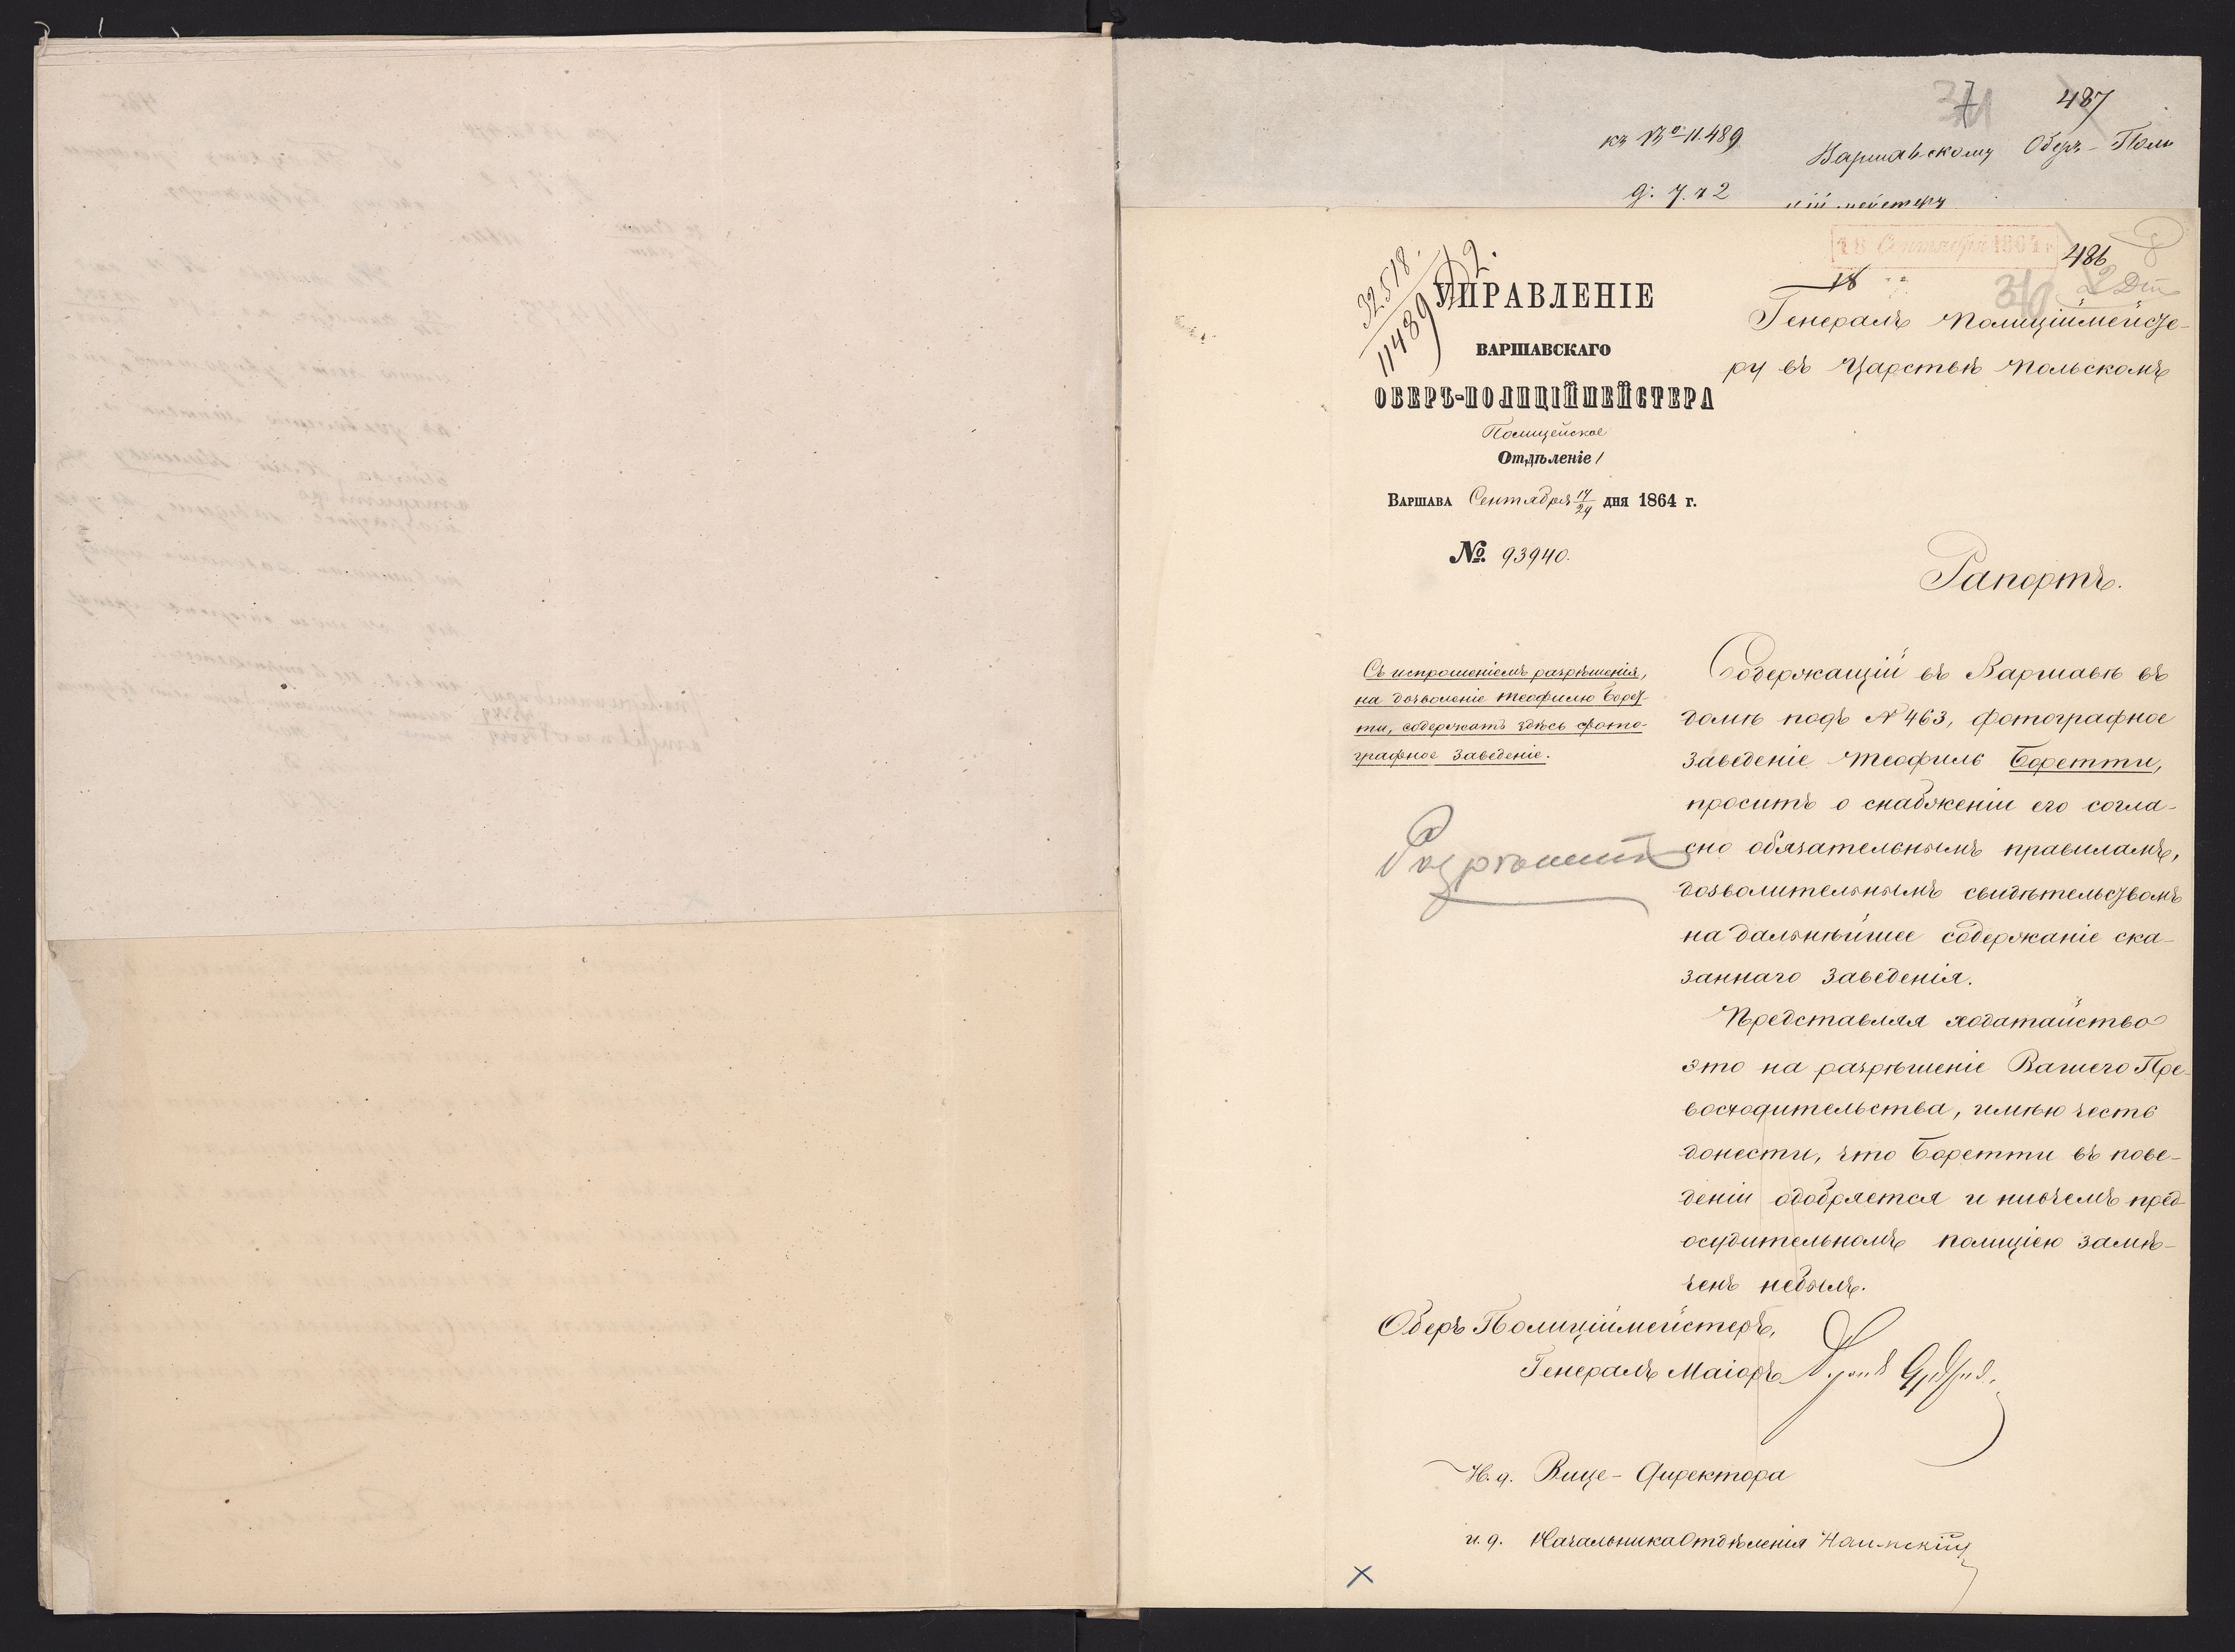 487
къ № 11.489
Варшавскому Оберъ-Поли
д: 7. 2
ціймейстеру
18 Сентября 1864 г.
486
32518.
11489
2.
18
УПРАВЛЕНІЕ
ВАРШАВСКАГО
ОБЕРЪ-ПОЛИЦІЙМЕЙСТЕРА
Полицейское
Отдѣленіе 1
Варшава Сентября 17/29 дня 1864 г.
№ 93940.
Генералъ Полиціймейсте-
ру въ Царствѣ Польскомъ
Рапортъ.
Съ испрошеніемъ разрѣшенія,
на дозволеніе Теофилю Борет-
ти, содержать здѣсь фото-
графное заведеніе.
Разрѣшить
Содержащій въ Варшавѣ въ
домѣ подъ № 463, фотографное
заведеніе Теофиль Боретти,
проситъ о снабженіи его согла-
сно обязательнымъ правиламъ,
дозволительнымъ свидѣтельствомъ
на дальнѣйшее содержаніе ска-
заннаго заведенія.
Представляя ходатайство
это на разрѣшеніе Вашего Пре-
восходительства, имѣю честь
донести, что Боретти въ пове-
деніи одобряется и ничемъ пред
осудительномъ полиціею замѣ-
ченъ небылъ.
Оберъ Полиціймейстеръ,
Генералъ Маіоръ
И. д. Вице-Директора
и. д. Начальника Отдѣленія